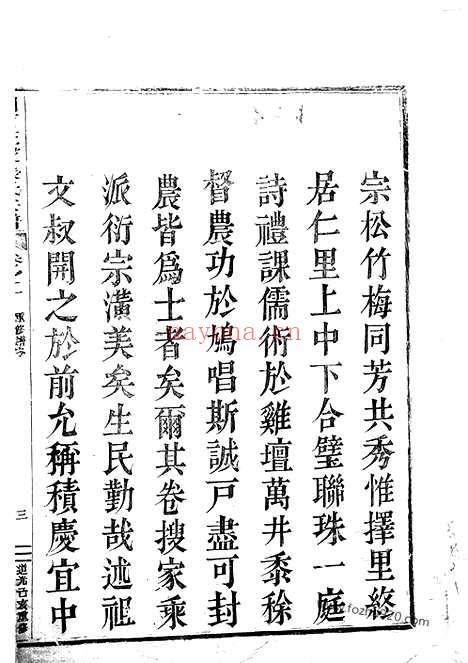 宗松竹梅同芳共秀惟擇里終
居仁里上中下合璧聯珠一庭
詩禮課儒術於雞壇萬井黍稌
督農功於鳩唱斯誠戸盡可封
農皆爲士者矣爾其卷搜家乘
派衍宗潢美矣生民勤哉述祖
文叔開之於前允稱積慶宜中
卷之二
三
道光己亥重修
nayona.cn
tcfozhang120.com